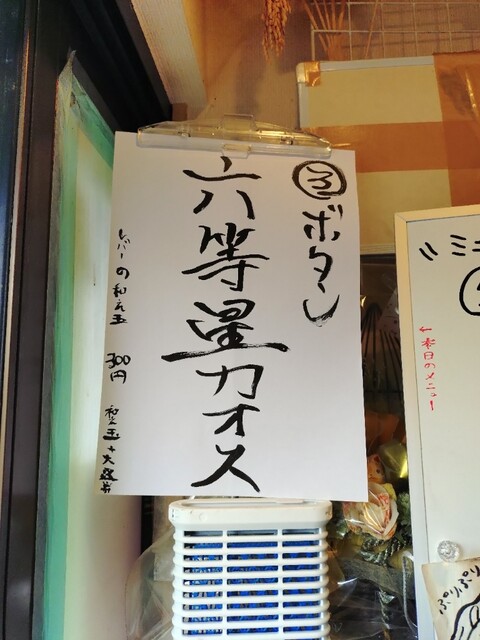 ③ボタン
六等星カオス
レバーの和え玉 300円 和え玉+大盛券
ミニ
←本日のメニュー
ぷりぷり